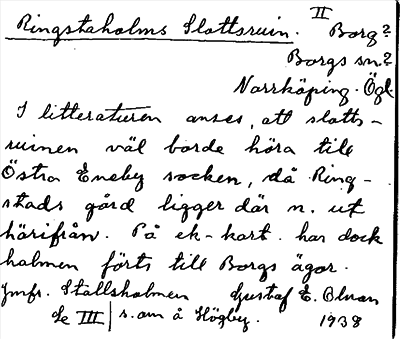 Ringstaholms Slottsruin. II Borg?
Borgs sn?
Norrköping. Ögl.
I litteraturen anses, att slotts-
ruinen väl borde höra till
Östra Eneby socken, då Ring-
stads gård ligger där n. ut
härifrån. På ek-kart. har dock
holmen förts till Borgs ägor.
Jmfr. Ställsholmen Gustaf E. Olsson
Se III | s. om å Högby. 1938